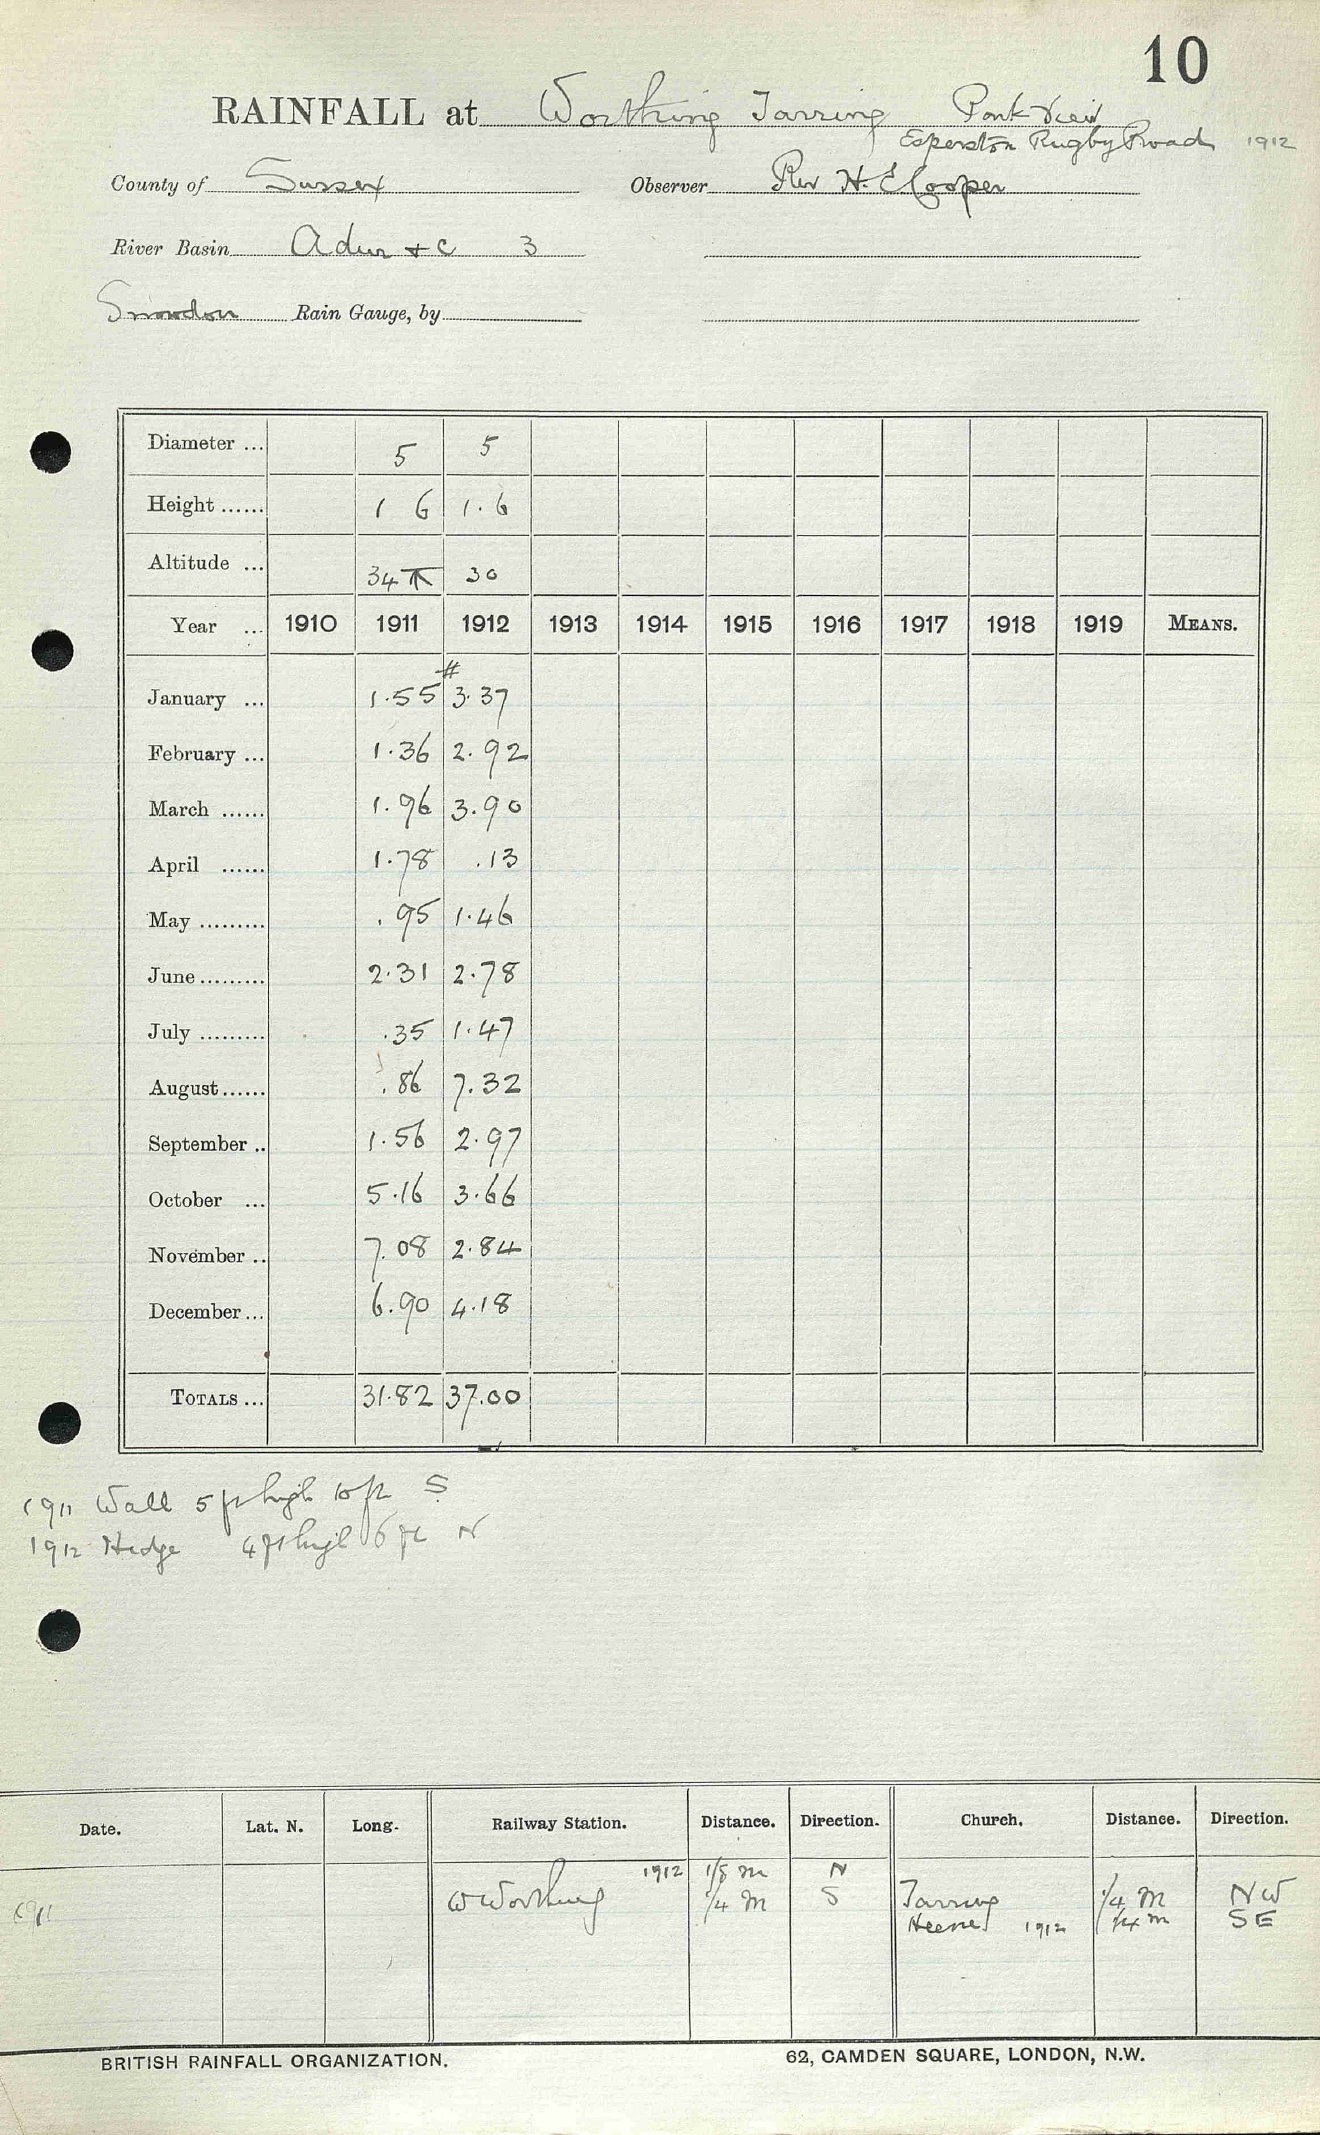 10
RAINFALL at Worthing Tarring Park View
Esperston Rugby Road 1912
County of Sussex Observer Rev H. E Cooper
River Basin Adur + c 3
Snowdon Rain Gauge, by
Diameter ... 5 5
Height ...... 1 6 1.6
Altitude ... 34 30
Year ... 1910 1911 1912 1913 1914 1915 1916 1917 1918 1919 MEANS.
#
January ... 1.55 3.37
February ... 1.36 2.92
March ...... 1.96 3.90
April ...... 1.78 .13
May ......... .95 1.46
June ......... 2.31 2.78
July ......... .35 1.47
August ...... .86 7.32
September .. 1.56 2.97
October ... 5.16 3.66
November .. 7.08 2.84
December ... 6.90 4.18
TOTALS ... 31.82 37.00
1911 Wall 5 ft high 10 ft S
1912 Hedge 4 ft high 6 ft N
Date. Lat. N. Long. Railway Station. Distance. Direction. Church. Distance. Direction.
1912 1/8 m N
1911 W Worthing 1/4 m S Tarring 1/4 m NW
Heene 1912 1/4 m SE
BRITISH RAINFALL ORGANIZATION. 62, CAMDEN SQUARE, LONDON, N.W.